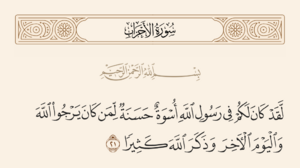 سُورَةُ الْأَحْزَابِ
بِسْمِ اللَّهِ الرَّحْمَٰنِ الرَّحِيمِ
لَقَدْ كَانَ لَكُمْ فِي رَسُولِ اللَّهِ أُسْوَةٌ حَسَنَةٌ لِمَن كَانَ يَرْجُوا اللَّهَ
وَالْيَوْمَ الْآخِرَ وَذَكَرَ اللَّهَ كَثِيرًا ٢١